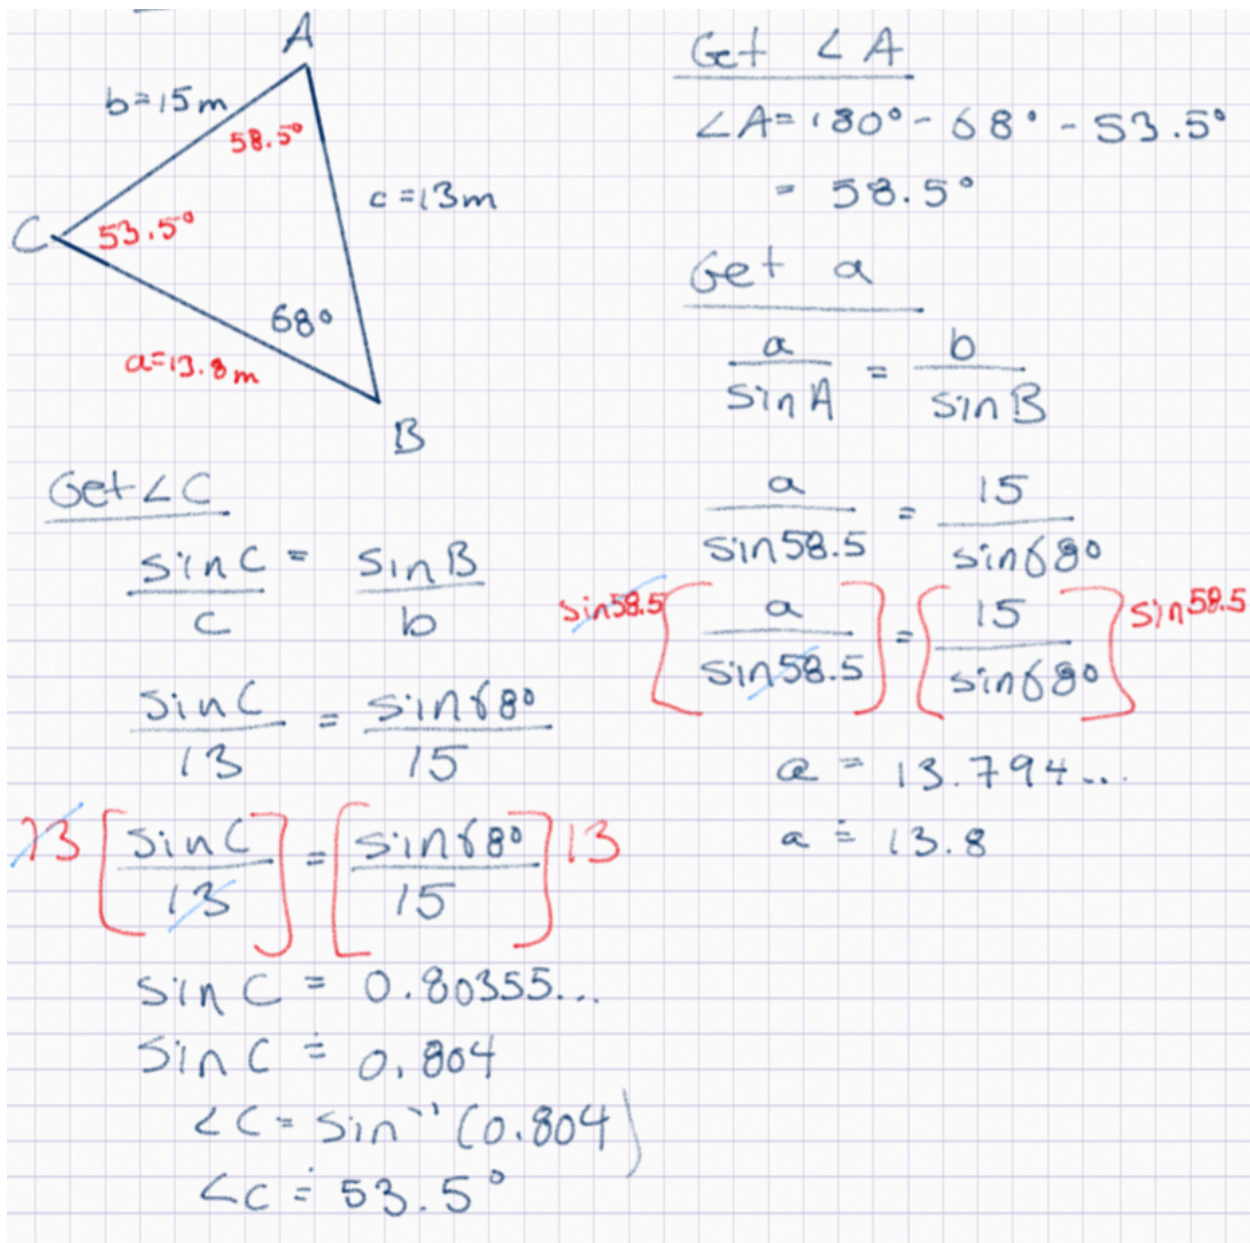 A
b=15m
58.5°
c=13m
C
53.5°
68°
a=13.8m
B
Get ∠C
sinC/c = sinB/b
sinC/13 = sin68°/15
13[sinC/13] = [sin68°/15]13
sinC = 0.80355...
sinC ≐ 0.804
∠C = sin⁻¹(0.804)
∠C ≐ 53.5°
Get ∠A
∠A=180°-68°-53.5°
= 58.5°
Get a
a/sinA = b/sinB
a/sin58.5 = 15/sin68°
sin58.5[a/sin58.5] = [15/sin68°]sin58.5
a = 13.794...
a ≐ 13.8